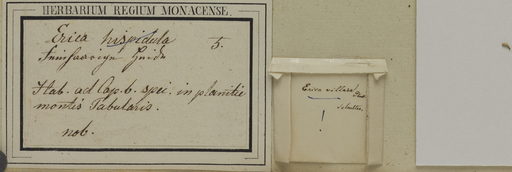 HERBARIUM REGIUM MONACENSE.
Erica hispidula 5.
Hab. ad Cap. b. spei. in planitie
montis Tabularis.
nob.
Erica villosa
!